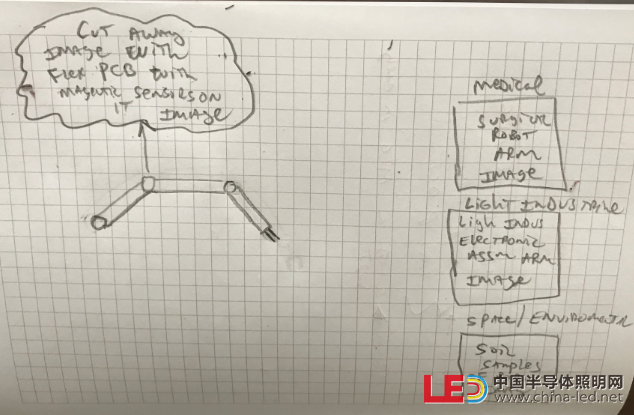 CUT AWAY
IMAGE WITH
FLEX PCB WITH
MAGETIC SENSORS ON
IT IMAGE
MEDICAL
SURGICAL
ROBOT
ARM
IMAGE
LIGHT INDUSTRIAL
LIGH INDUS
ELECTRONIC
ASSM ARM
IMAGE
SPACE/ENVIROMENTAL
SOIL
SAMPLES
LED 中国半导体照明网
www.china-led.net